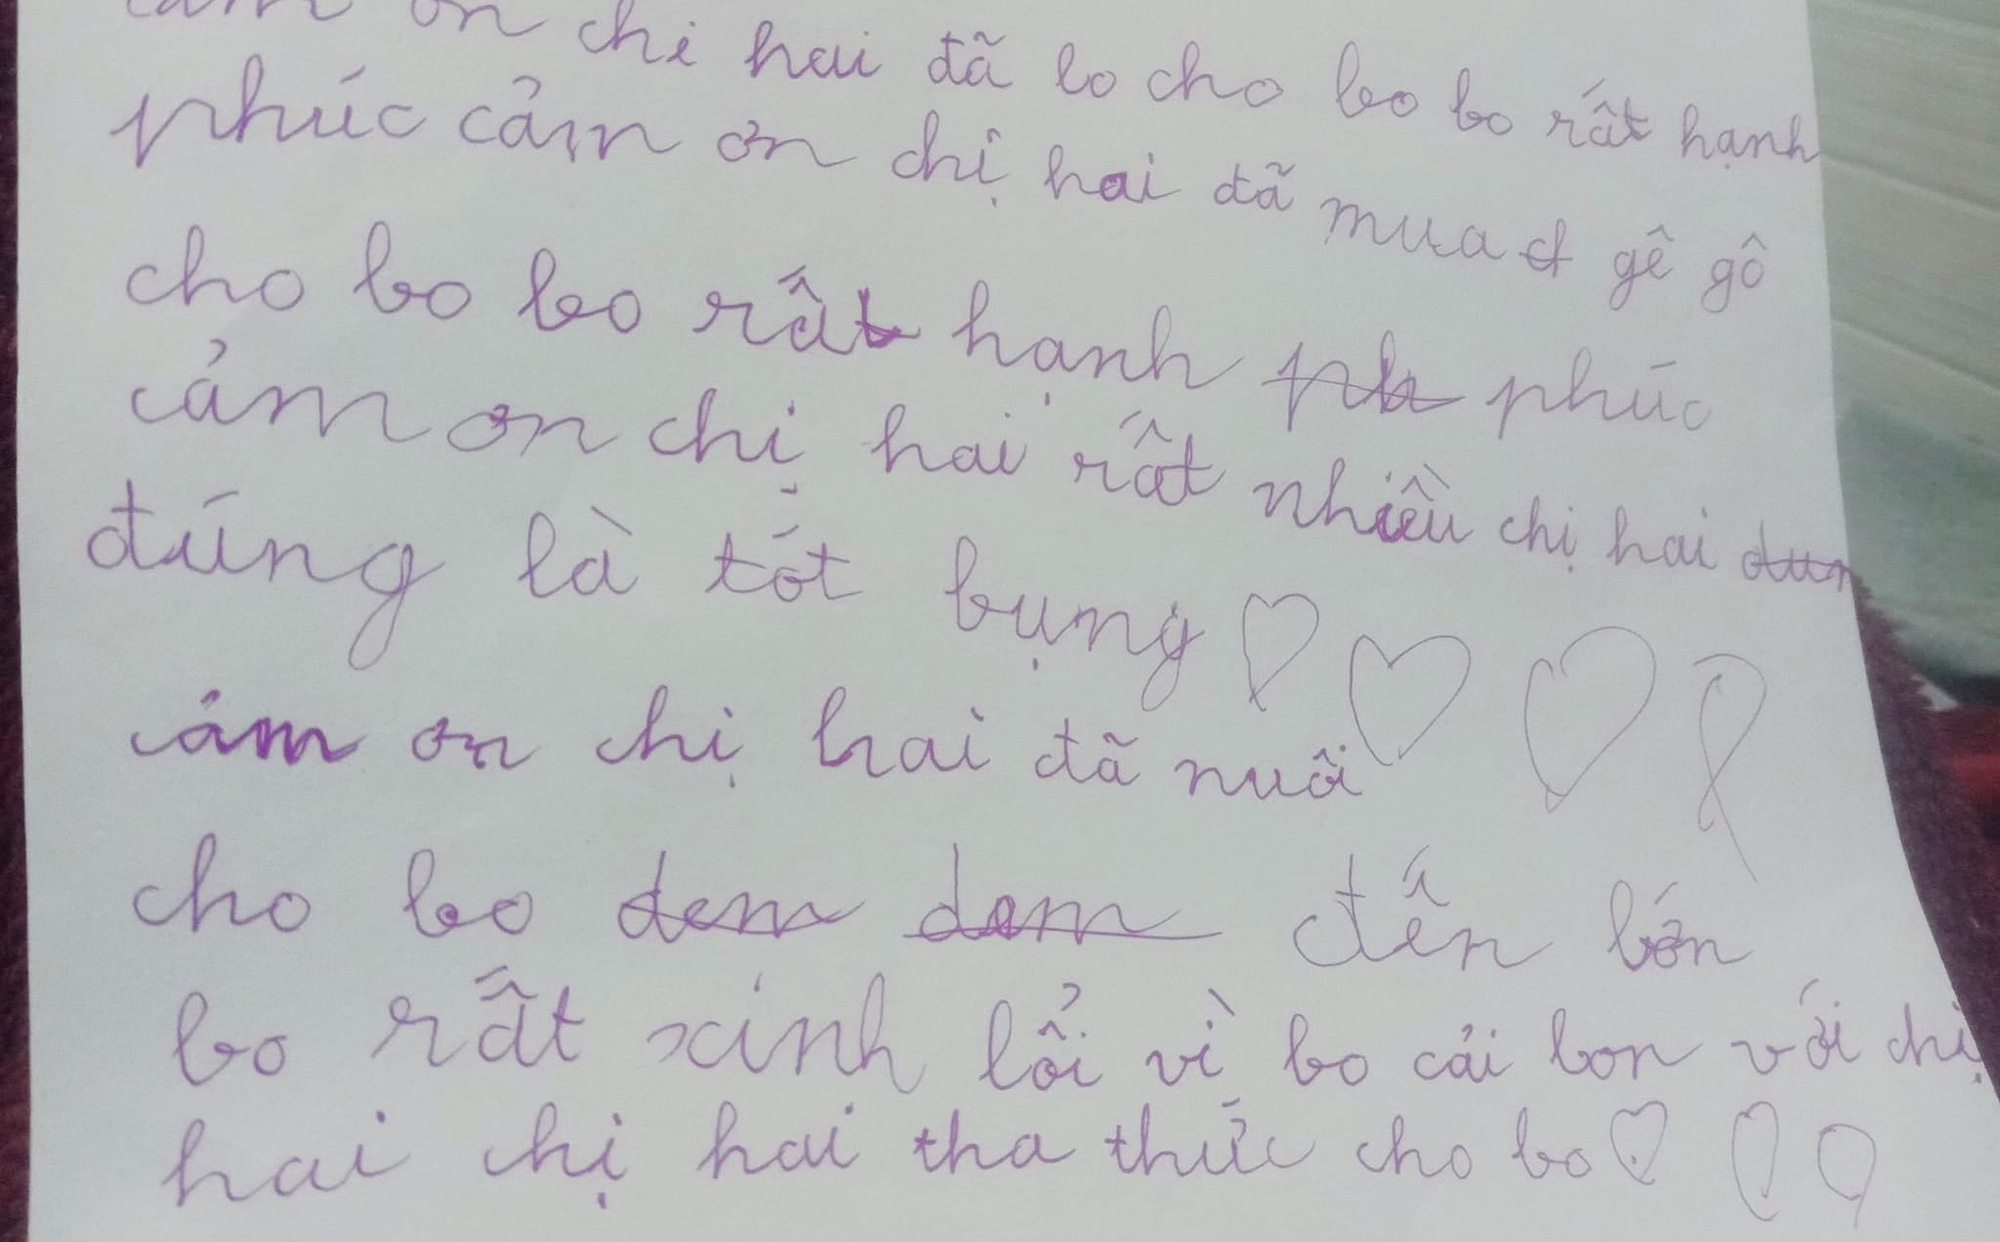 cảm ơn chi hai đã lo cho bo bo rất hạnh
phúc cảm ơn chị hai đã mua gê gô
cho bo bo rất hạnh phúc
cảm ơn chị hai rất nhiều chị hai
đúng là tốt bụng
cảm ơn chị hai đã nuôi
cho bo đến lớn
bo rất xinh lổi vì bo cải lon với chị
hai chị hai tha thức cho bo